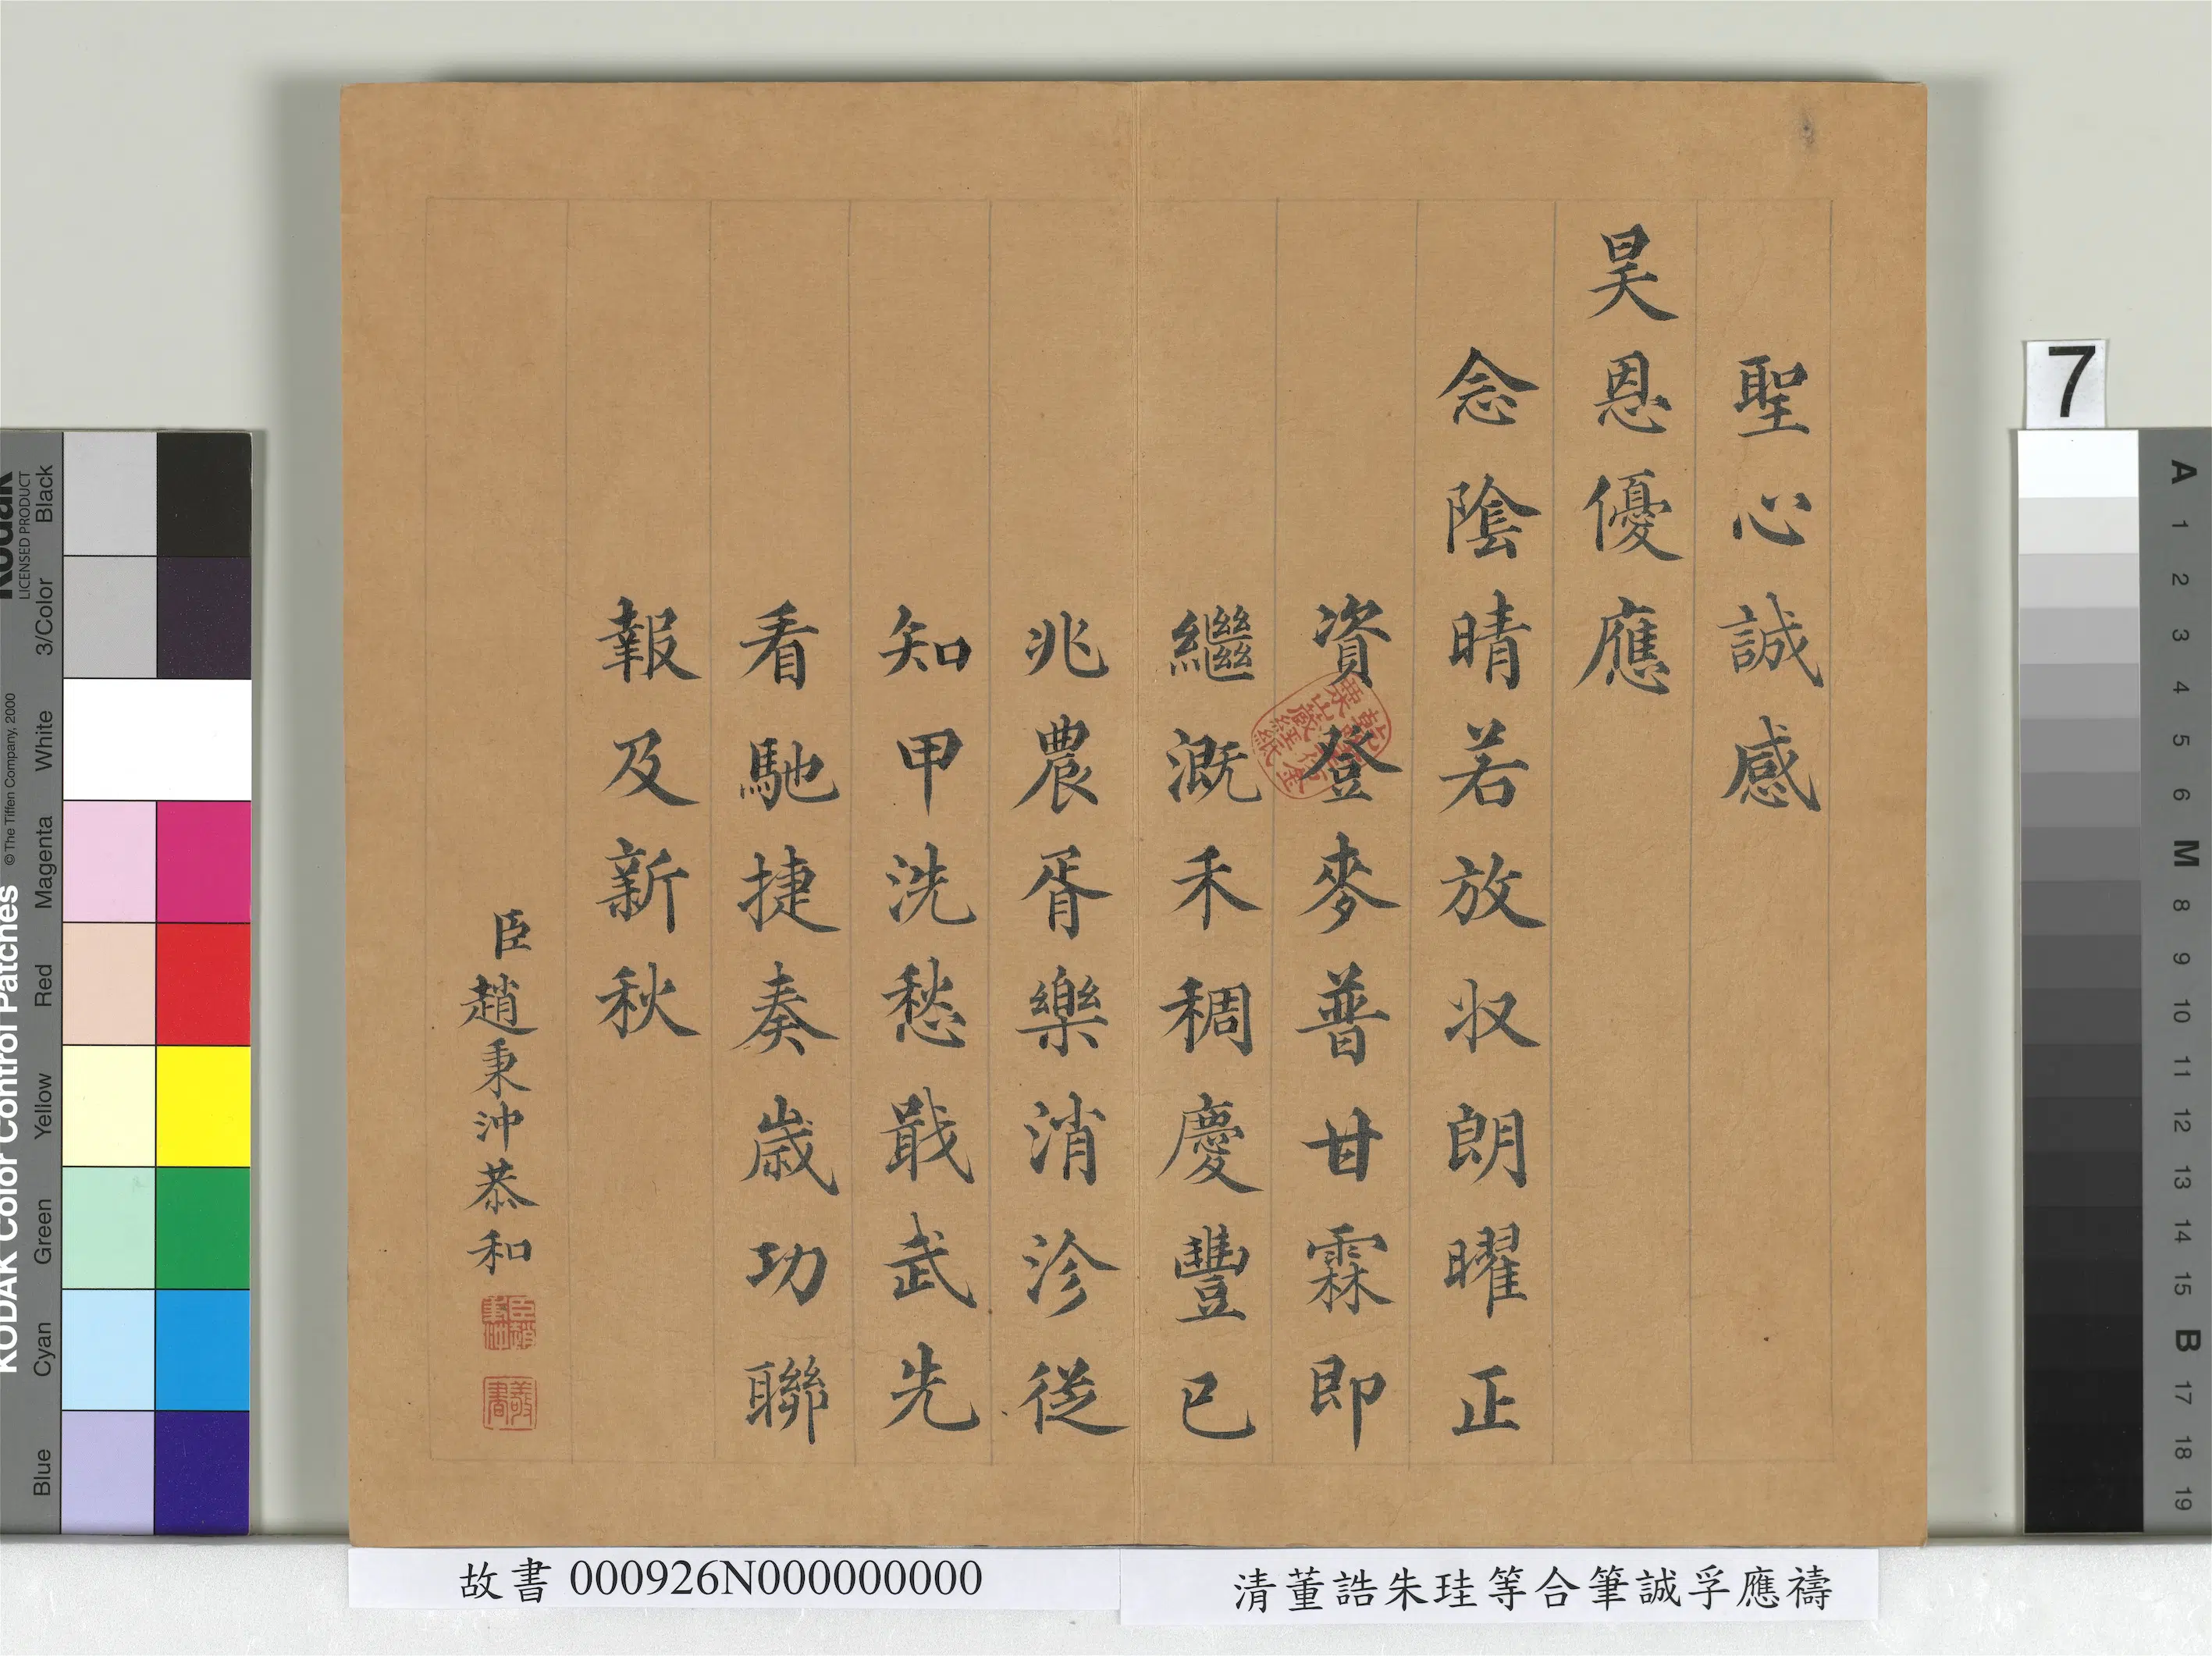 聖心誠感
昊恩優應
念陰晴若放収朗曜正
資登麥普甘霖即
繼溉禾稠慶豐已
兆農胥樂消沴從
知甲洗愁戢武先
看馳捷奏歲功聯
報及新秋
臣趙秉沖恭和
乾隆年仿金粟山藏經紙
敬書
故書 000926N000000000
清董誥朱珪等合筆誠孚應禱
7
KODAK Color Control Patches
© The Tiffen Company, 2000
Kodak
LICENSED PRODUCT
Blue
Cyan
Green
Yellow
Red
Magenta
White
3/Color
Black
A
1
2
3
4
5
6
M
8
9
10
11
12
13
14
15
B
17
18
19